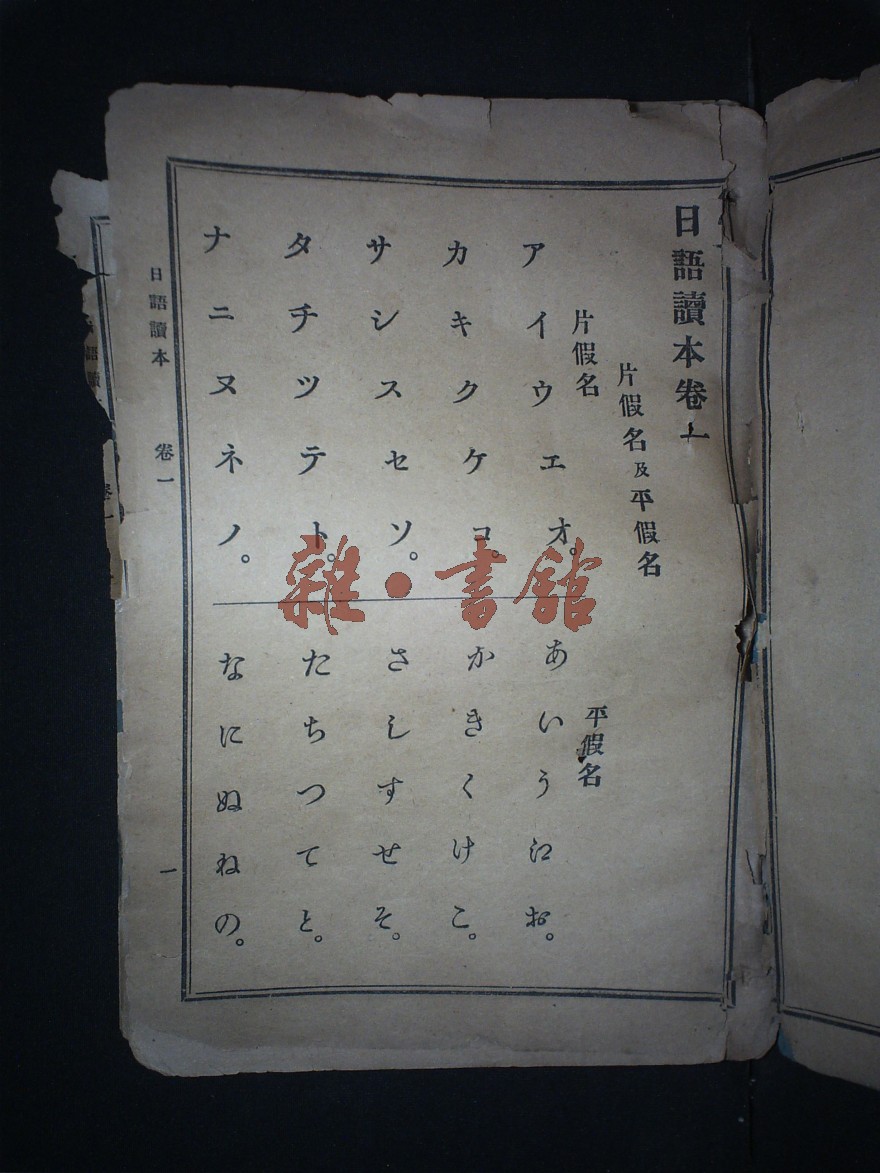 日語讀本卷一
片假名及平假名
片假名
アイウエオ。
カキクケコ。
サシスセソ。
タチツテト。
ナニヌネノ。
平假名
あいう𛀁お。
かきくけこ。
さしすせそ。
たちつてと。
なにぬねの。
日語讀本 卷一
一
雜●書館